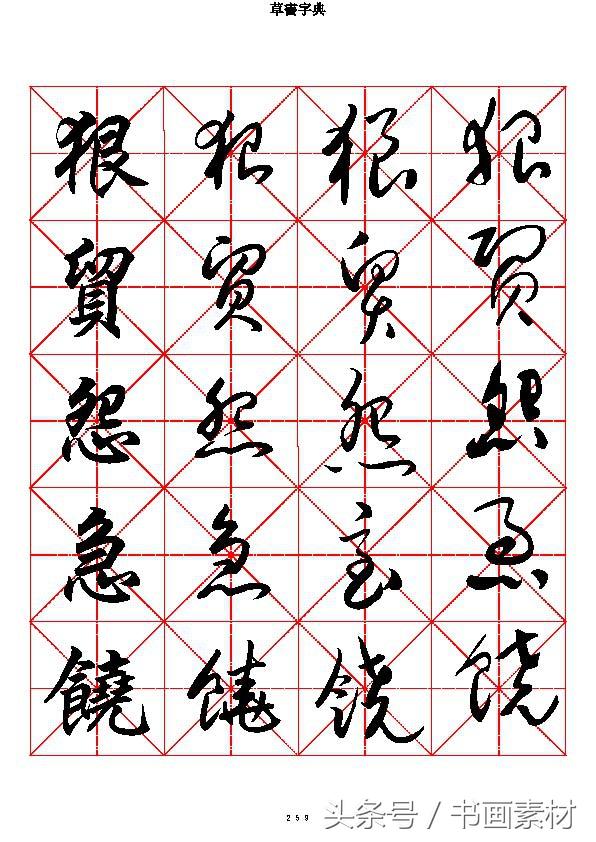 草書字典
狠 狠 狠 狠
貿 貿 貿 貿
怨 怨 怨 怨
急 急 急 急
饒 饒 饒 饒
259
头条号 / 书画素材